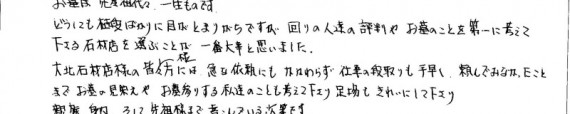 お墓は 先祖代々、一生ものです。
どうしても 値段ばかりに目がとまりがちですが 回りの人達の 評判や お墓のことを第一に考えて
下さる石材店を選ぶことが 一番大事と思いました。
大北石材店様の皆様方には、急な依頼にも かかわらず 仕事の段取りも手早く、頼んでみなかったこと
まで お墓の見栄えや お墓参りする私達のことも考えて下さり 足場も きれいにして下さり
親族 身内、そして先祖様まで 喜んでいる 次第です